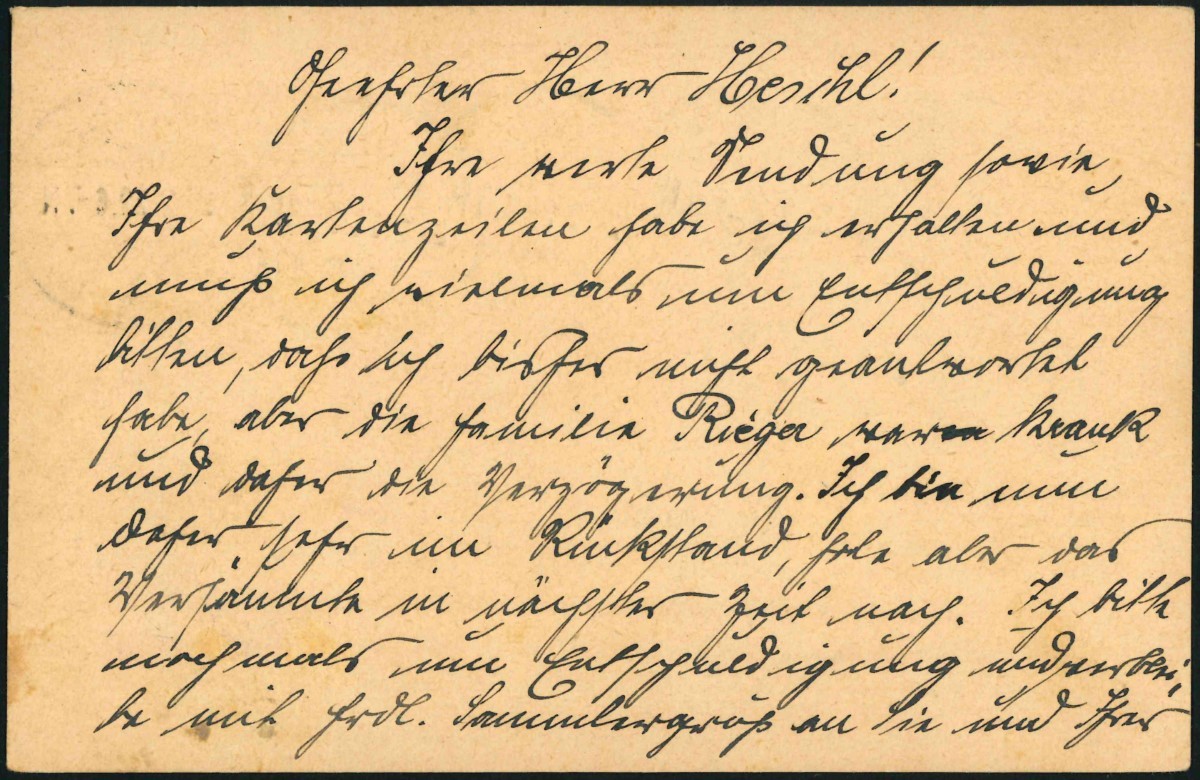 Geehrter Herr Heschl!
Ihre werte Sendung sowie
Ihre Kartenzeilen habe ich erhalten und
muß ich vielmals um Entschuldigung
bitten, dahs ich bisher nicht geantwortet
habe, aber die Familie Rieger war krank
und daher die Verzögerung. Ich bin nun
daher sehr im Rückstand, hole aber das
Versäumte in nächster Zeit nach. Ich bitte
nochmals um Entschuldigung und verblei-
be mit frdl. Sammlergruß an Sie und Ihrer